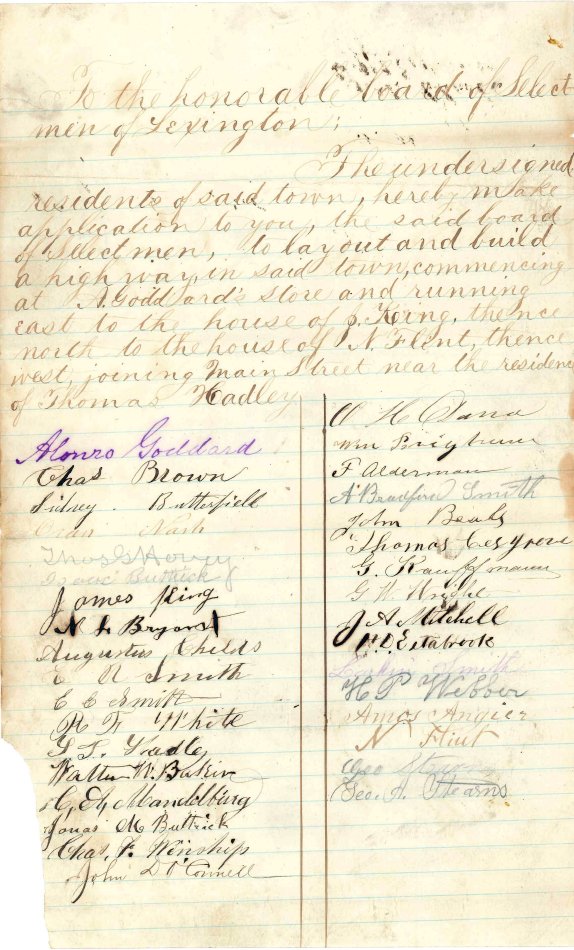 To the honorable board of Select
men of Lexington;
The undersigned
residents of said town, hereby make
application to you, the said board
of Select men, to lay out and build
a highway in said town, commencing
at A. Goddard's store and running
east to the house of J. Kerng, thence
north to the house of N. Flint, thence
west, joining Main Street near the residenc
of Thomas Hadley
Alonzo Goddard
Chas Brown
Sidney Butterfield
Nash
Thos G Hovey
Isaac Buttrick
James King
N L Bryant
Augustus Childs
E A Smith
E C Smith
R F White
G T Hadley
Walter W. Baker
Jonas M Buttrick
Chas. F. Winship
John D O'Connell
W H Dana
Wm Brigham
F Alderman
A Bradford Smith
John Beals
Thomas Cosgrove
G. Kauffmann
G W Wright
J A Mitchell
H. D. Estabrook
Larkin Smith
H P Webber
Amos Angier
N Flint
Geo
Geo. A. Stearns